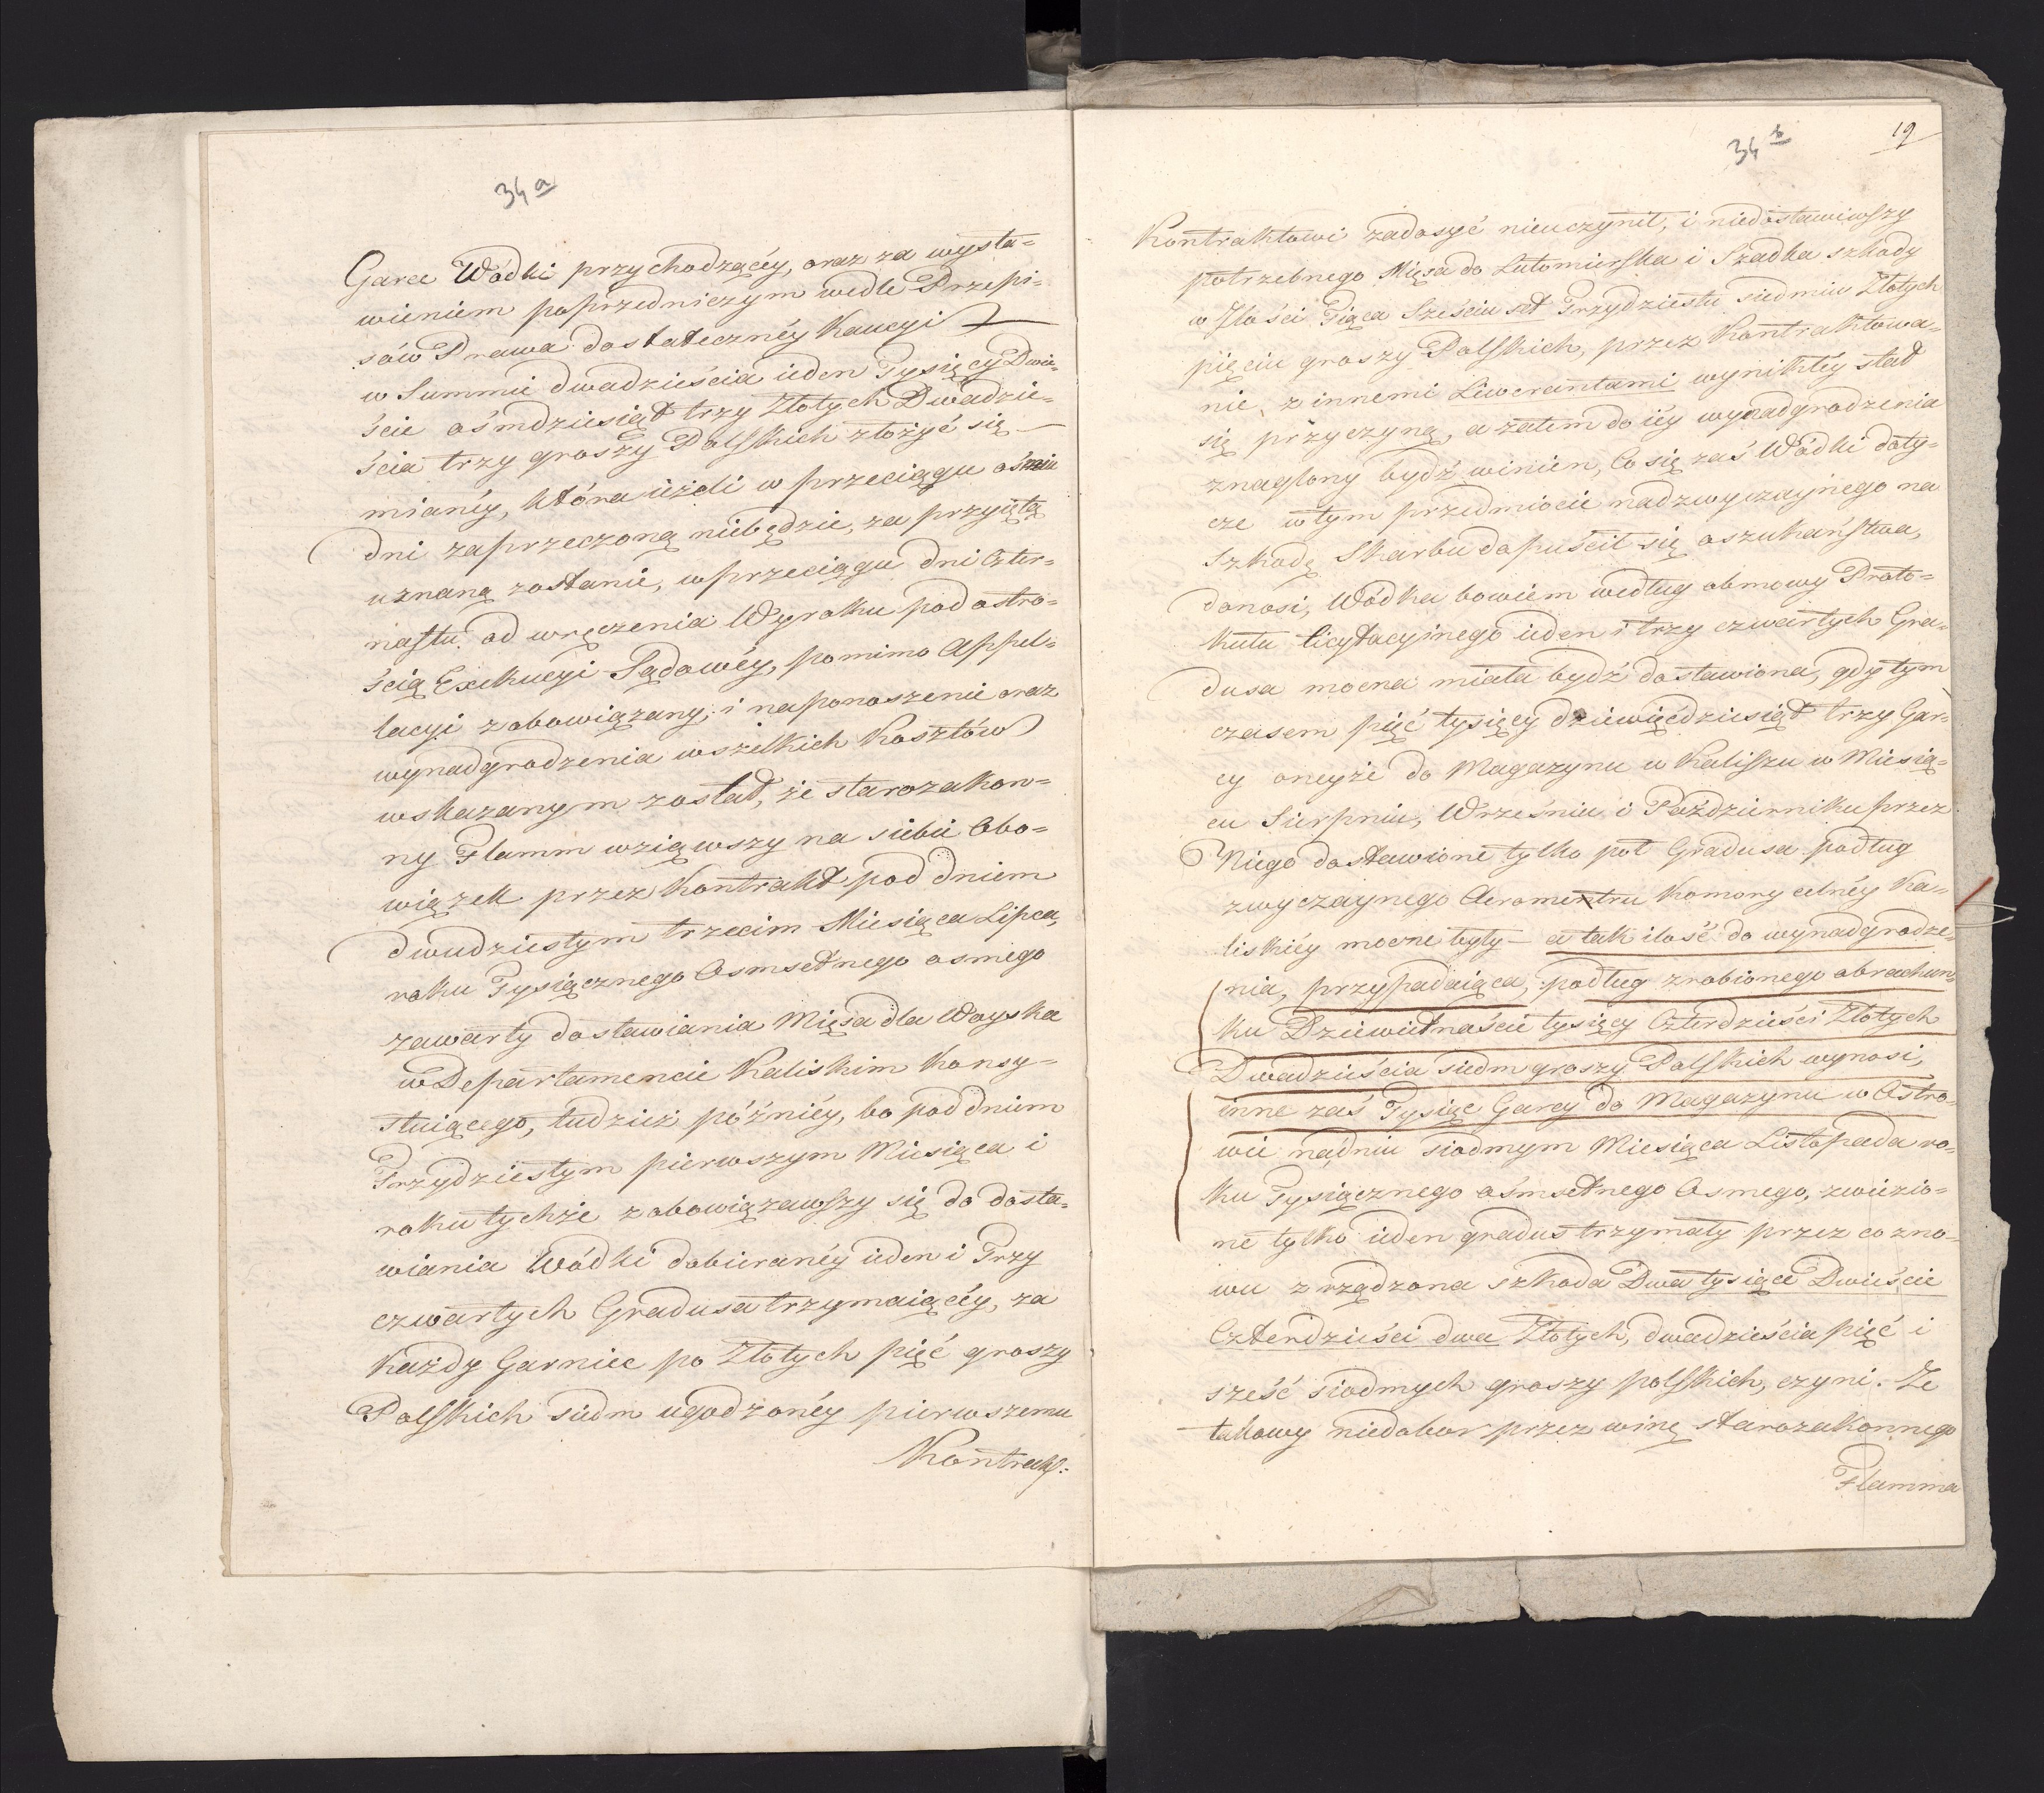 34 a
Garce Wódki przychodzącéy, oraz za wysta=
wieniem poprzedniczym wedle Przepi=
sów Prawa dostatecznéy Kaucyi
w Summie dwadzieścia ieden Tysięcy Dwie=
ście ośmdziesiąt trzy Złotych Dwadzie=
ścia trzy groszy Polskich złożyć się
mianéy, która ieżeli w przeciągu ośmiu
dni zaprzeczoną niebędzie, za przyiętą
uznaną zostanie, w przeciągu dni czter=
nastu od wręczenia Wyroku pod ostro=
ścią Exekucyi Sądowéy, pomimo Appel=
lacyi zobowiązany, i na ponoszenie oraz
wynadgrodzenia wszelkich Kosztów
wskazanym został, że starozakon=
ny Flamm wziąwszy na siebie Obo=
wiązek przez Kontrakt pod dniem
dwudziestym trzecim Miesiąca Lipca,
roku Tysiącznego Osmsetnego osmego
zawarty dostawiania Mięsa dla Woyska
w Departamencie Kaliskim konsy=
stuiącego, tudzież późniéy, bo pod dniem
Trzydziestym pierwszym Miesiąca i
roku tychże zobowiązawszy się do dosta=
wiania Wódki dobieranéy ieden i Trzy
czwartych Gradusa trzymaiącéy, za
każdy Garniec po Złotych pięć groszy
Polskich siedm ugodzonéy pierwszemu
Kontrak=
34 b
19
Kontraktowi zadosyć nieuczynił, i niedostawiwszy
potrzebnego Mięsa do Lutomierska i Szadka szkody
w Ilości Tiąca Sześciuset Trzydziestu siedmiu Złotych
pięciu groszy Polskich, przez Kontraktowa=
nie z innemi Liwerantami wynikłéy stał
się przyczyną, a zatem do iéy wynadgrodzenia
znaglony bydź winien, Co się zaś Wódki doty=
cze w tym przedmiocie nadzwyczaynego na
Szkodę Skarbu dopuścił się oszukaństwa,
donosi, Wódka bowiem według obmowy Proto=
kułu licytacyinego ieden i trzy czwartych Gra=
dusa mocna miała bydź dostawiona, gdy tym
czasem pięć tysięcy dziewięćdziesiąt trzy Gar=
cy oneyże do Magazynu w Kaliszu w Miesią=
cu Sierpniu, Wrześniu i Październiku przez
Niego dostawione tylko poł Gradusa podług
zwyczaynego Aeromentru Komory celnéy Ka=
liskiéy mocne były — a tak ilość do wynadgrodze=
nia, przypadaiąca, podług zrobionego obrachun=
ku Dziewietnaście tysięcy Czterdzieści Złotych
Dwadzieścia siedm groszy Polskich wynosi,
inne zaś Tysiąc Garcy do Magazynu w Ostro=
wie na dniu siodmym Miesiąca Listopada ro=
ku Tysiącznego ośmsetnego Osmego, zwiezio=
ne tylko ieden gradus trzymały przez co zno=
wu zrządzona szkoda Dwa tysiące Dwieście
Czterdzieści dwa Złotych, dwadzieścia pięć i
sześć siodmych groszy polskich, czyni. Ze
takowy niedobor przez winę starozakonnego
Flamma